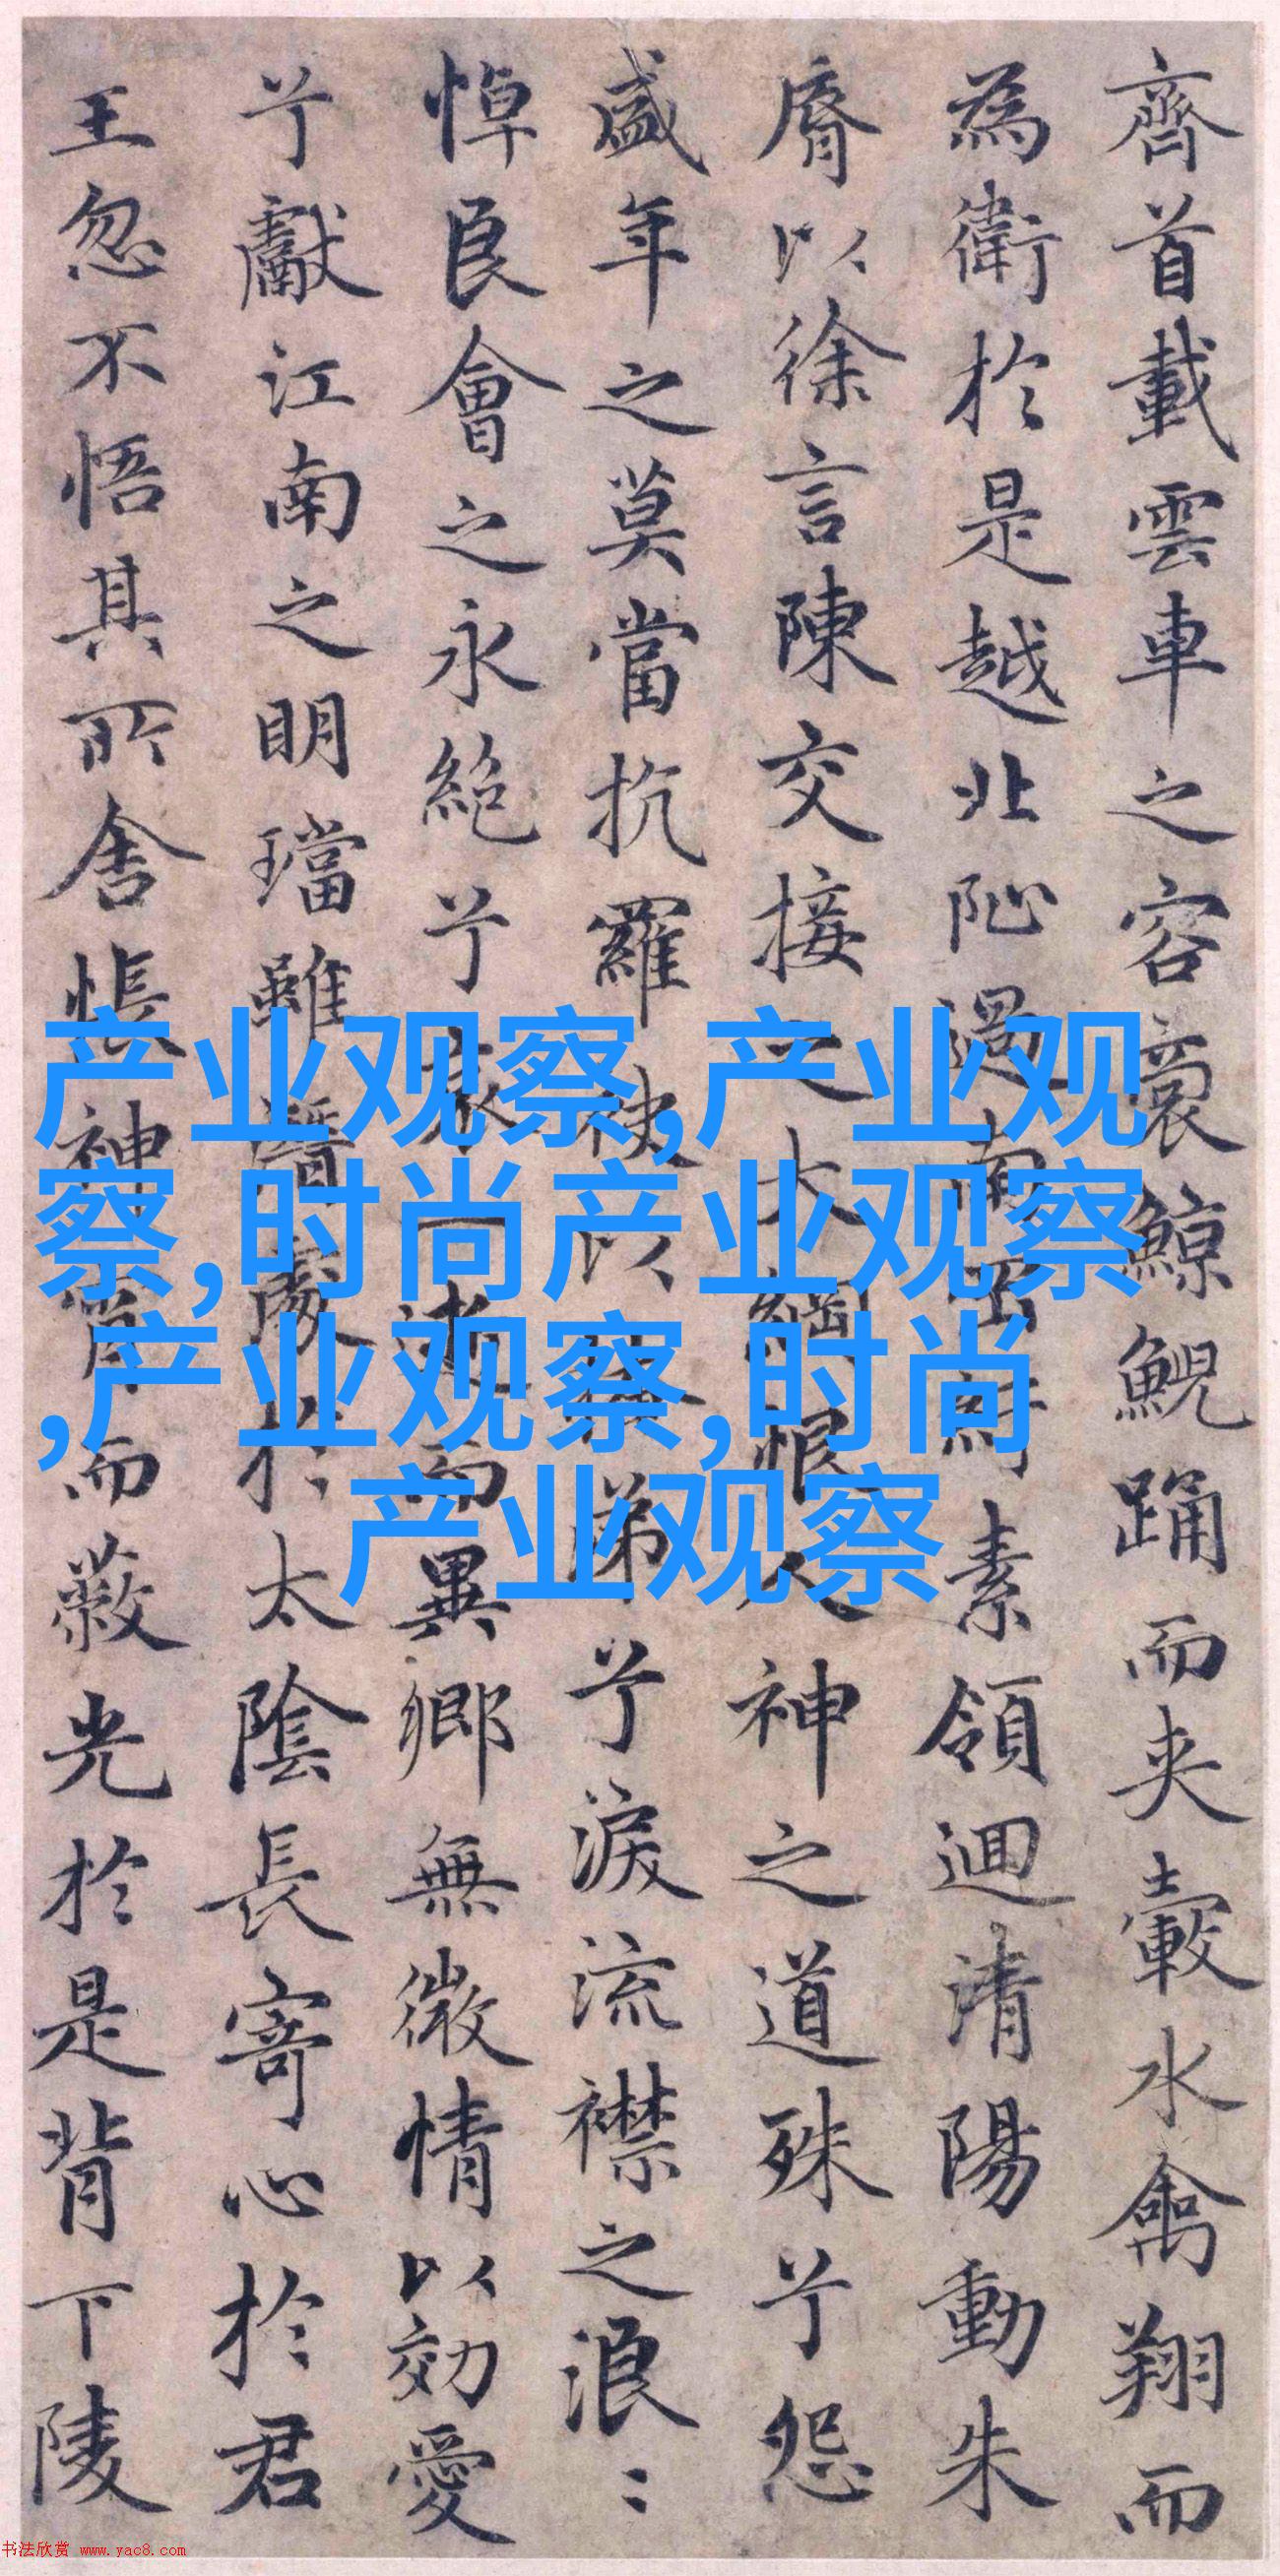 齊首載雲車之容裔鯨鯢踴而夾轂水禽翔而
為衛於是越北沚過南岡紆素領迴清陽動朱
脣以徐言陳交接之大綱恨人神之道殊兮怨
盛年之莫當抗羅袂以掩涕兮淚流襟之浪〻
悼良會之永絕兮哀一逝而異鄉無微情以効愛
兮獻江南之明璫雖潛處於太陰長寄心於君
王忽不悟其所舍悵神宵而蔽光於是背下陵
产业观察,产业观
察,时尚产业观察
,产业观察,时尚
产业观察
书法欣赏 www.yac8.com